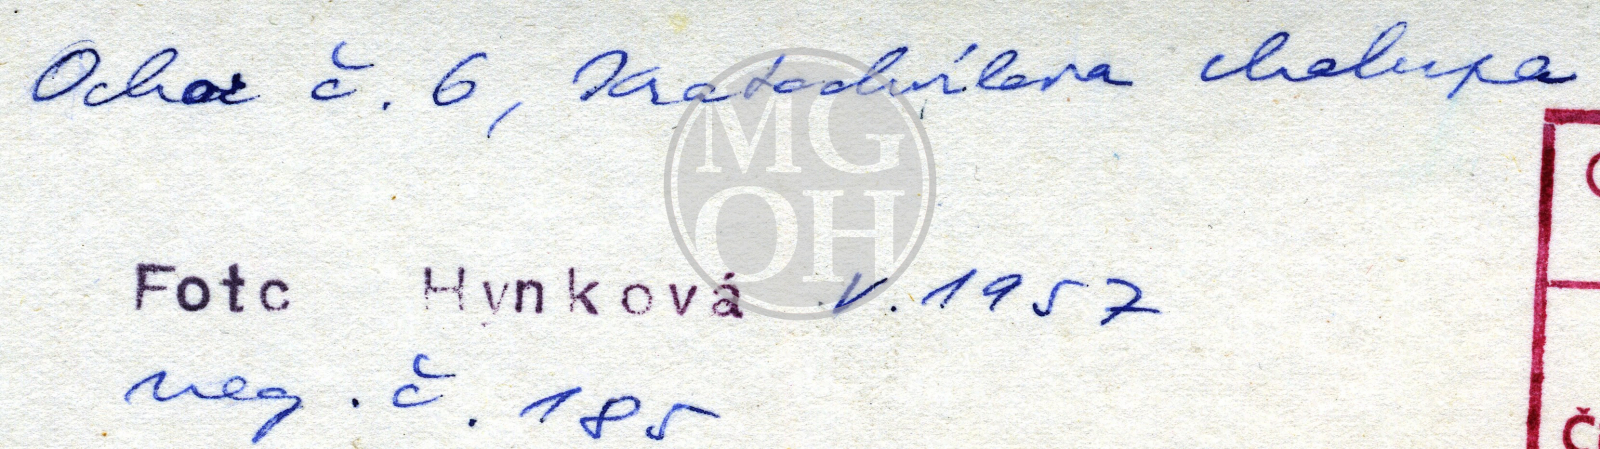 Ochoz č. 6, Kratochvílova chalupa
Foto Hynková V. 1957
neg. č. 185
MG
OH